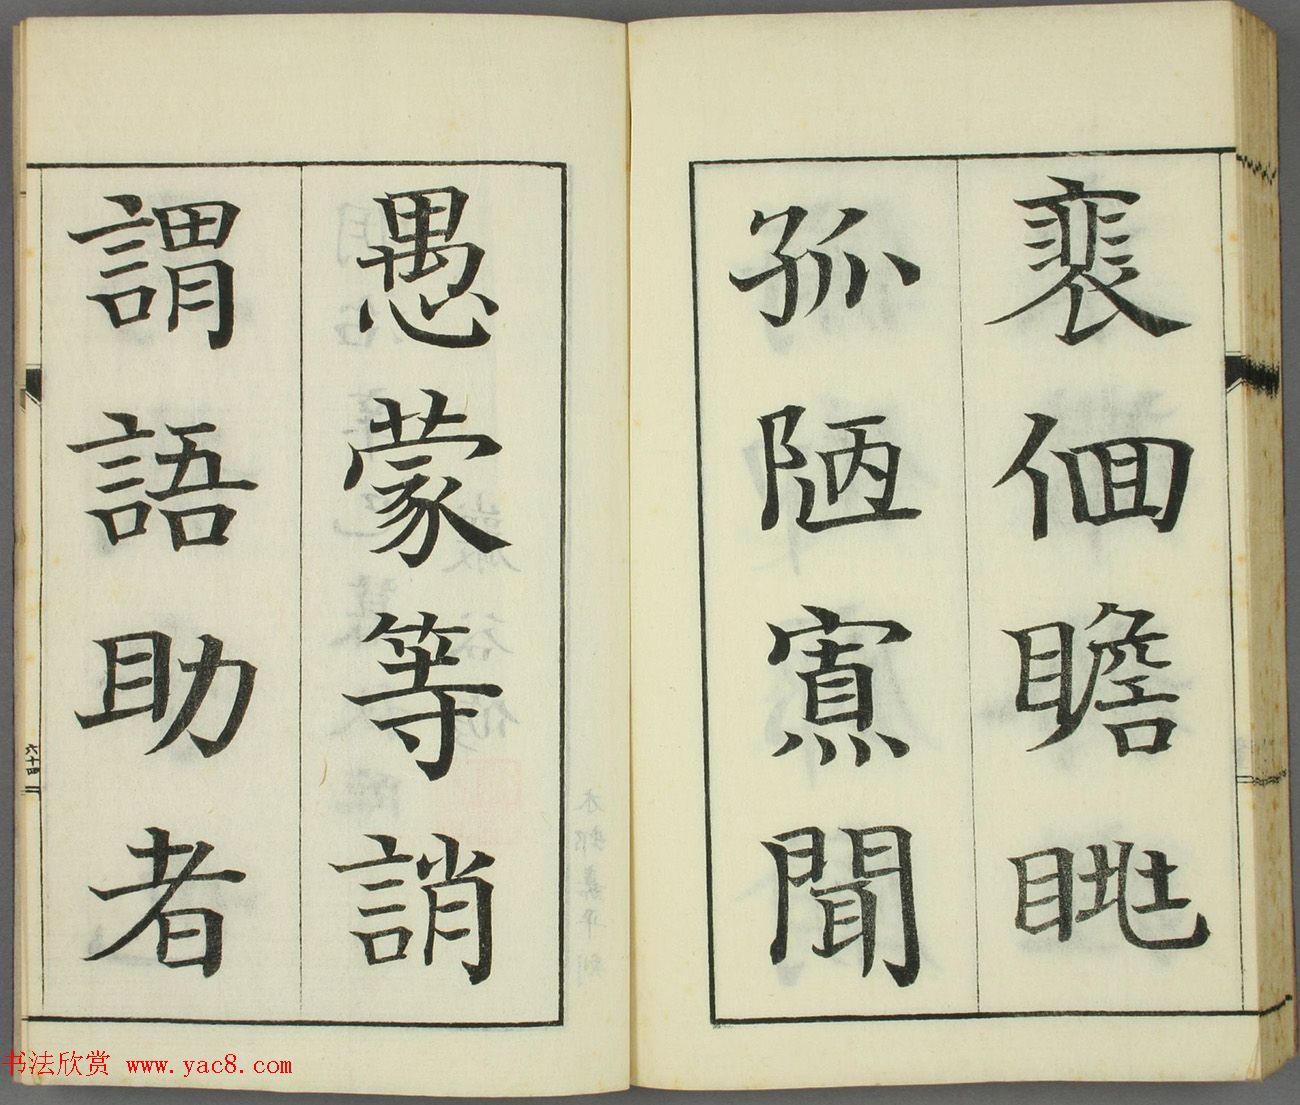 裵佪瞻眺
孤陋寡聞
愚蒙等誚
謂語助者
六十四
書法欣赏 www.yac8.com